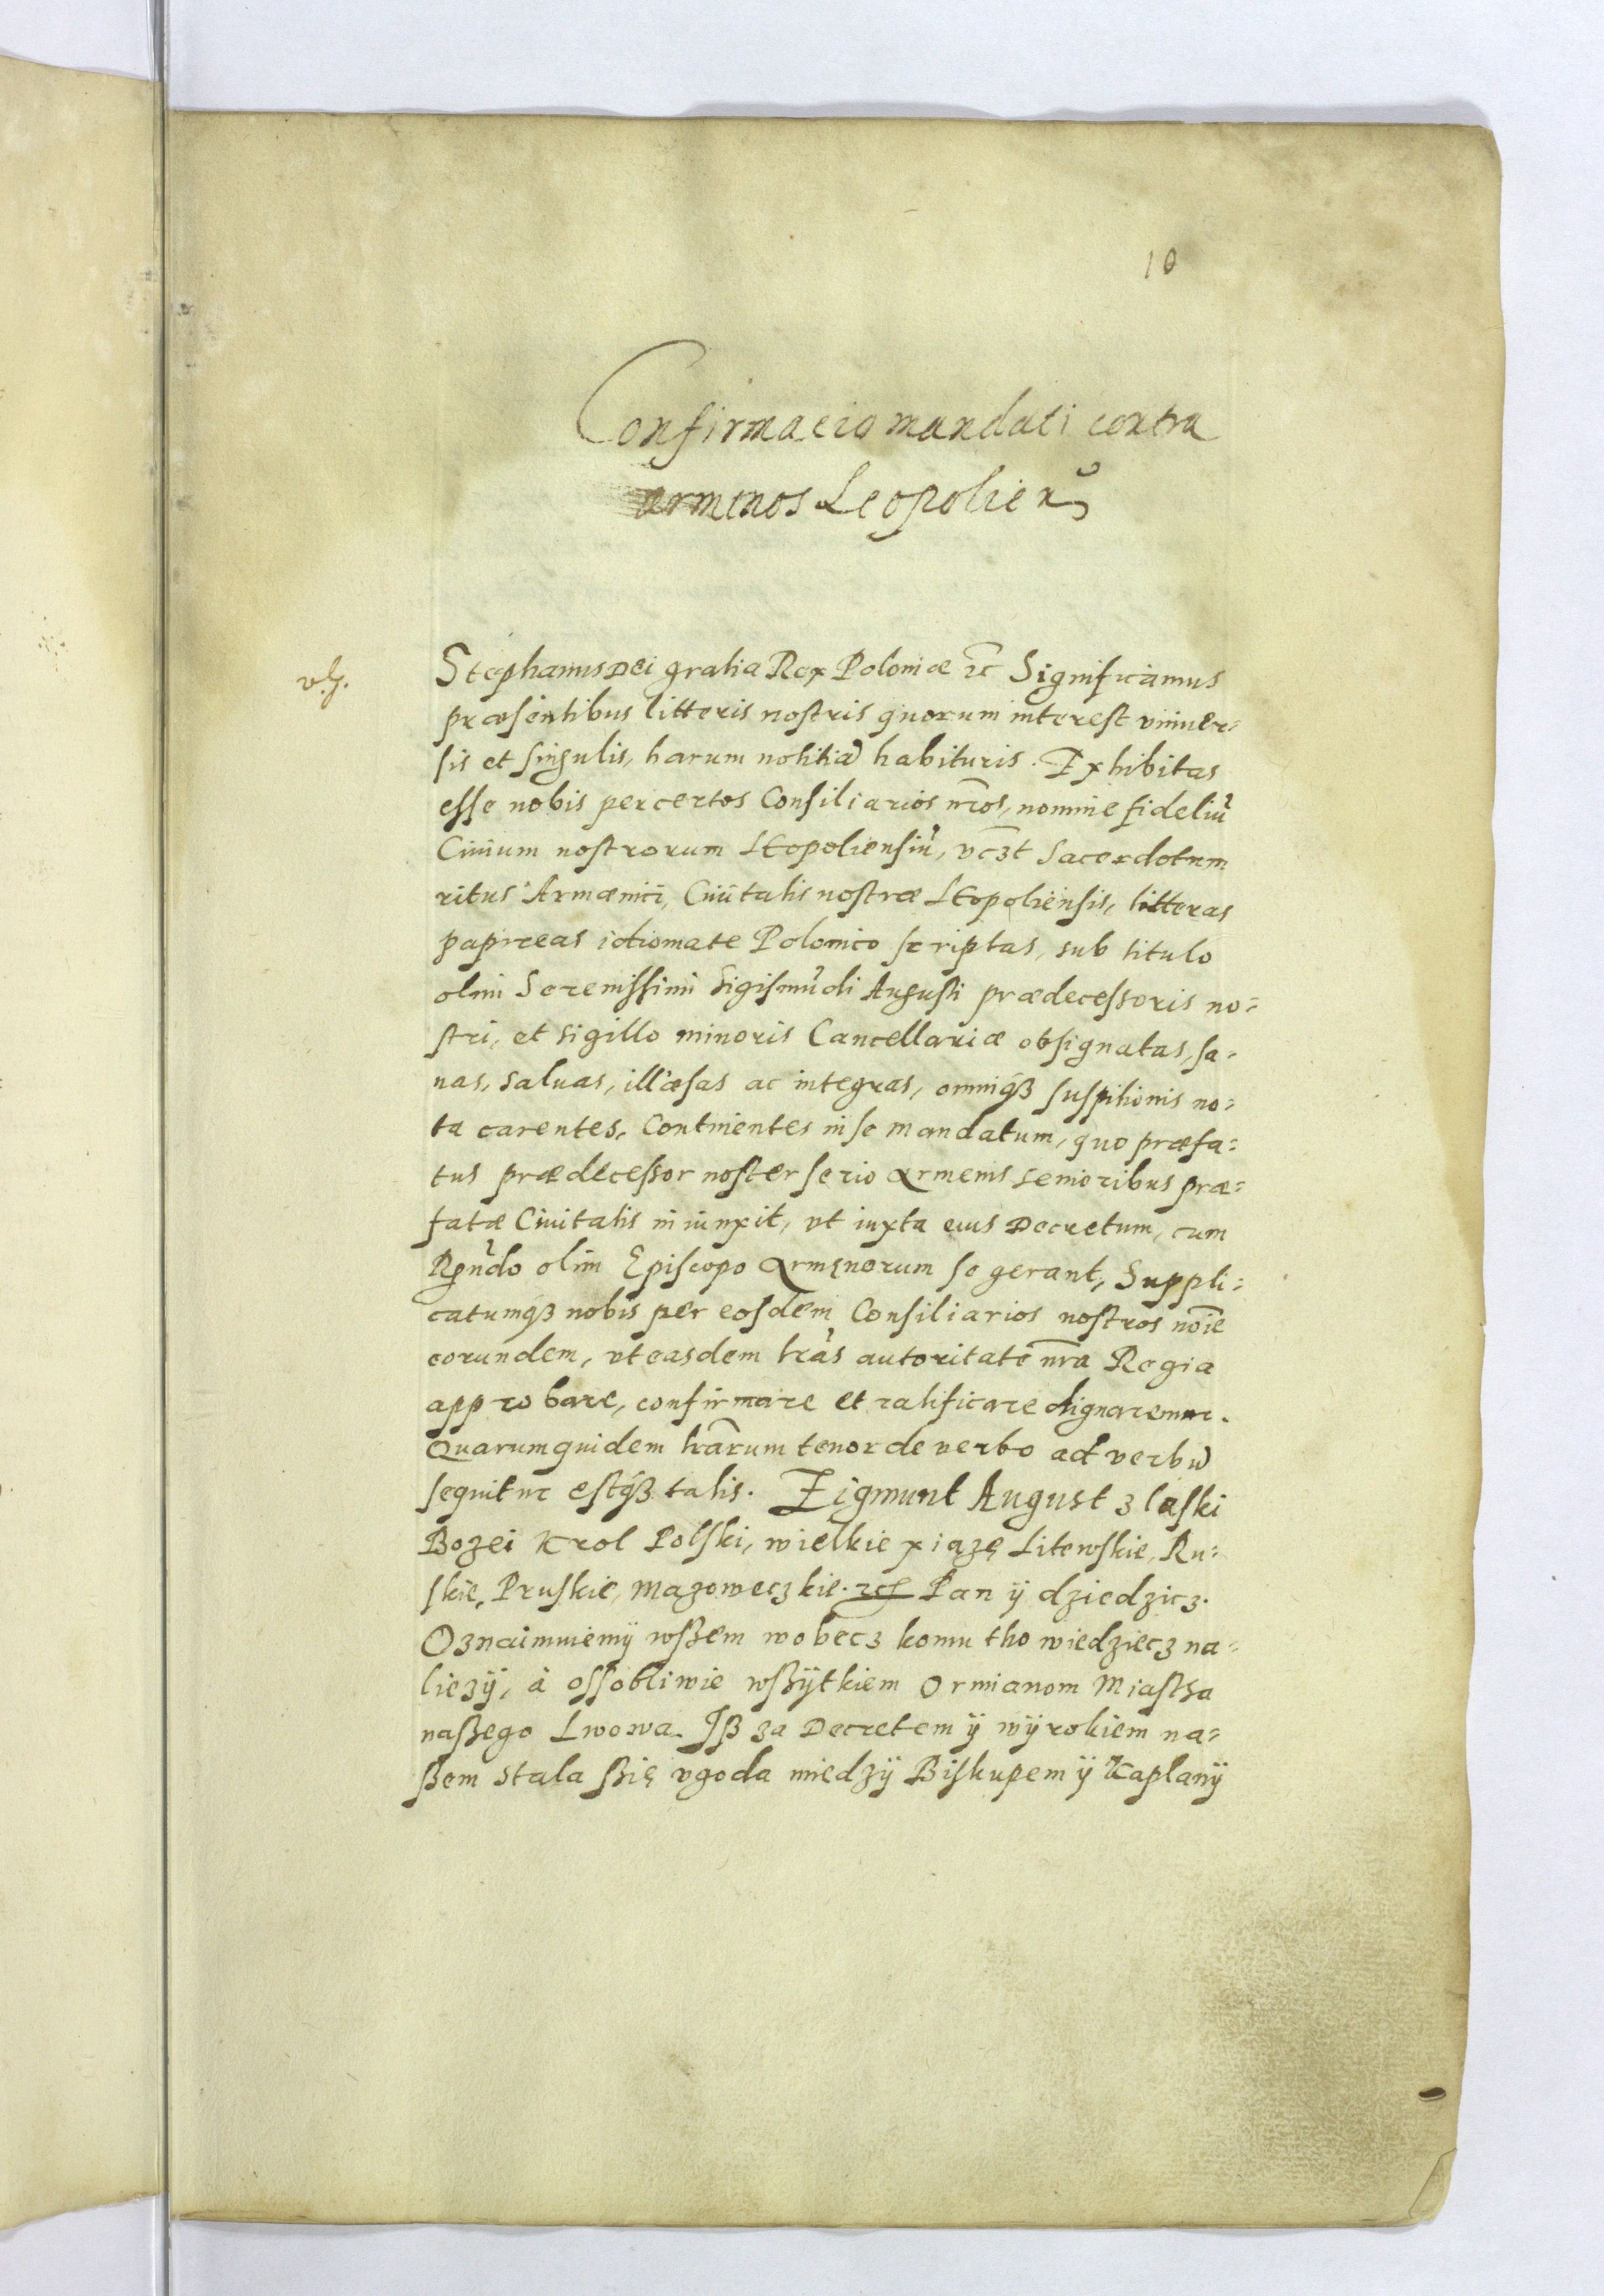 10
Confirmacio mandati contra
armenos Leopolien̄
Stephanus Dei gratia Rex Poloniæ ꝛc̄ Significamus
præsentibus litteris nostris quorum interest vniuer=
sis et singulis, harum notitiā habituris. Exhibitas
esse nobis per certos Consiliarios nr̄os, nomine fideliū
Ciuium nostrorum LEopoliensiū, vc̄ꝫt Sacerdotum
ritus Armænici, Ciuitatis nostræ LEopoliensis, litteras
papireas idiomate Polonico scriptas, sub titulo
olim Serenissimi Sigismūdi Augusti prædecessoris no=
stri, et sigillo minoris Cancellariæ obsignatas, sa=
nas, saluas, illæsas ac integras, omniqꝫ suspitionis no=
ta carentes, Continentes in se mandatum, quo præfa=
tus prædecessor noster serio Armenis senioribus præ=
fatæ Ciuitatis iniunxit, vt iuxta eius Decretum, cum
Rndo olim Episcopo Armenorum se gerant, Suppli=
catumqꝫ nobis per eosdem Consiliarios nostros noīe
eorundem, vt easdem lr̄as autoritate nr̄a Regia
approbare, confirmare et ratificare dignaremur.
Quarumquidem lr̄arum tenor de verbo ad verbū
sequitur estqꝫ talis. Zigmunt August z laski
Bozei Krol Polski, wielkie xiązę Litewskie, Ru=
skie, Pruskie, Mazoweczkie. ꝛc Pan ÿ dziedzicz.
Oznaimuiemÿ wßem wobecz komu tho wiedziecz na=
liezÿ, à ossobliwie wßÿtkiem Ormianom Miastha
naßego Lwowa. Iß za Decretem ÿ wÿrokiem na=
ßem stala ßię vgoda miedzÿ Biskupem ÿ Kaplanÿ